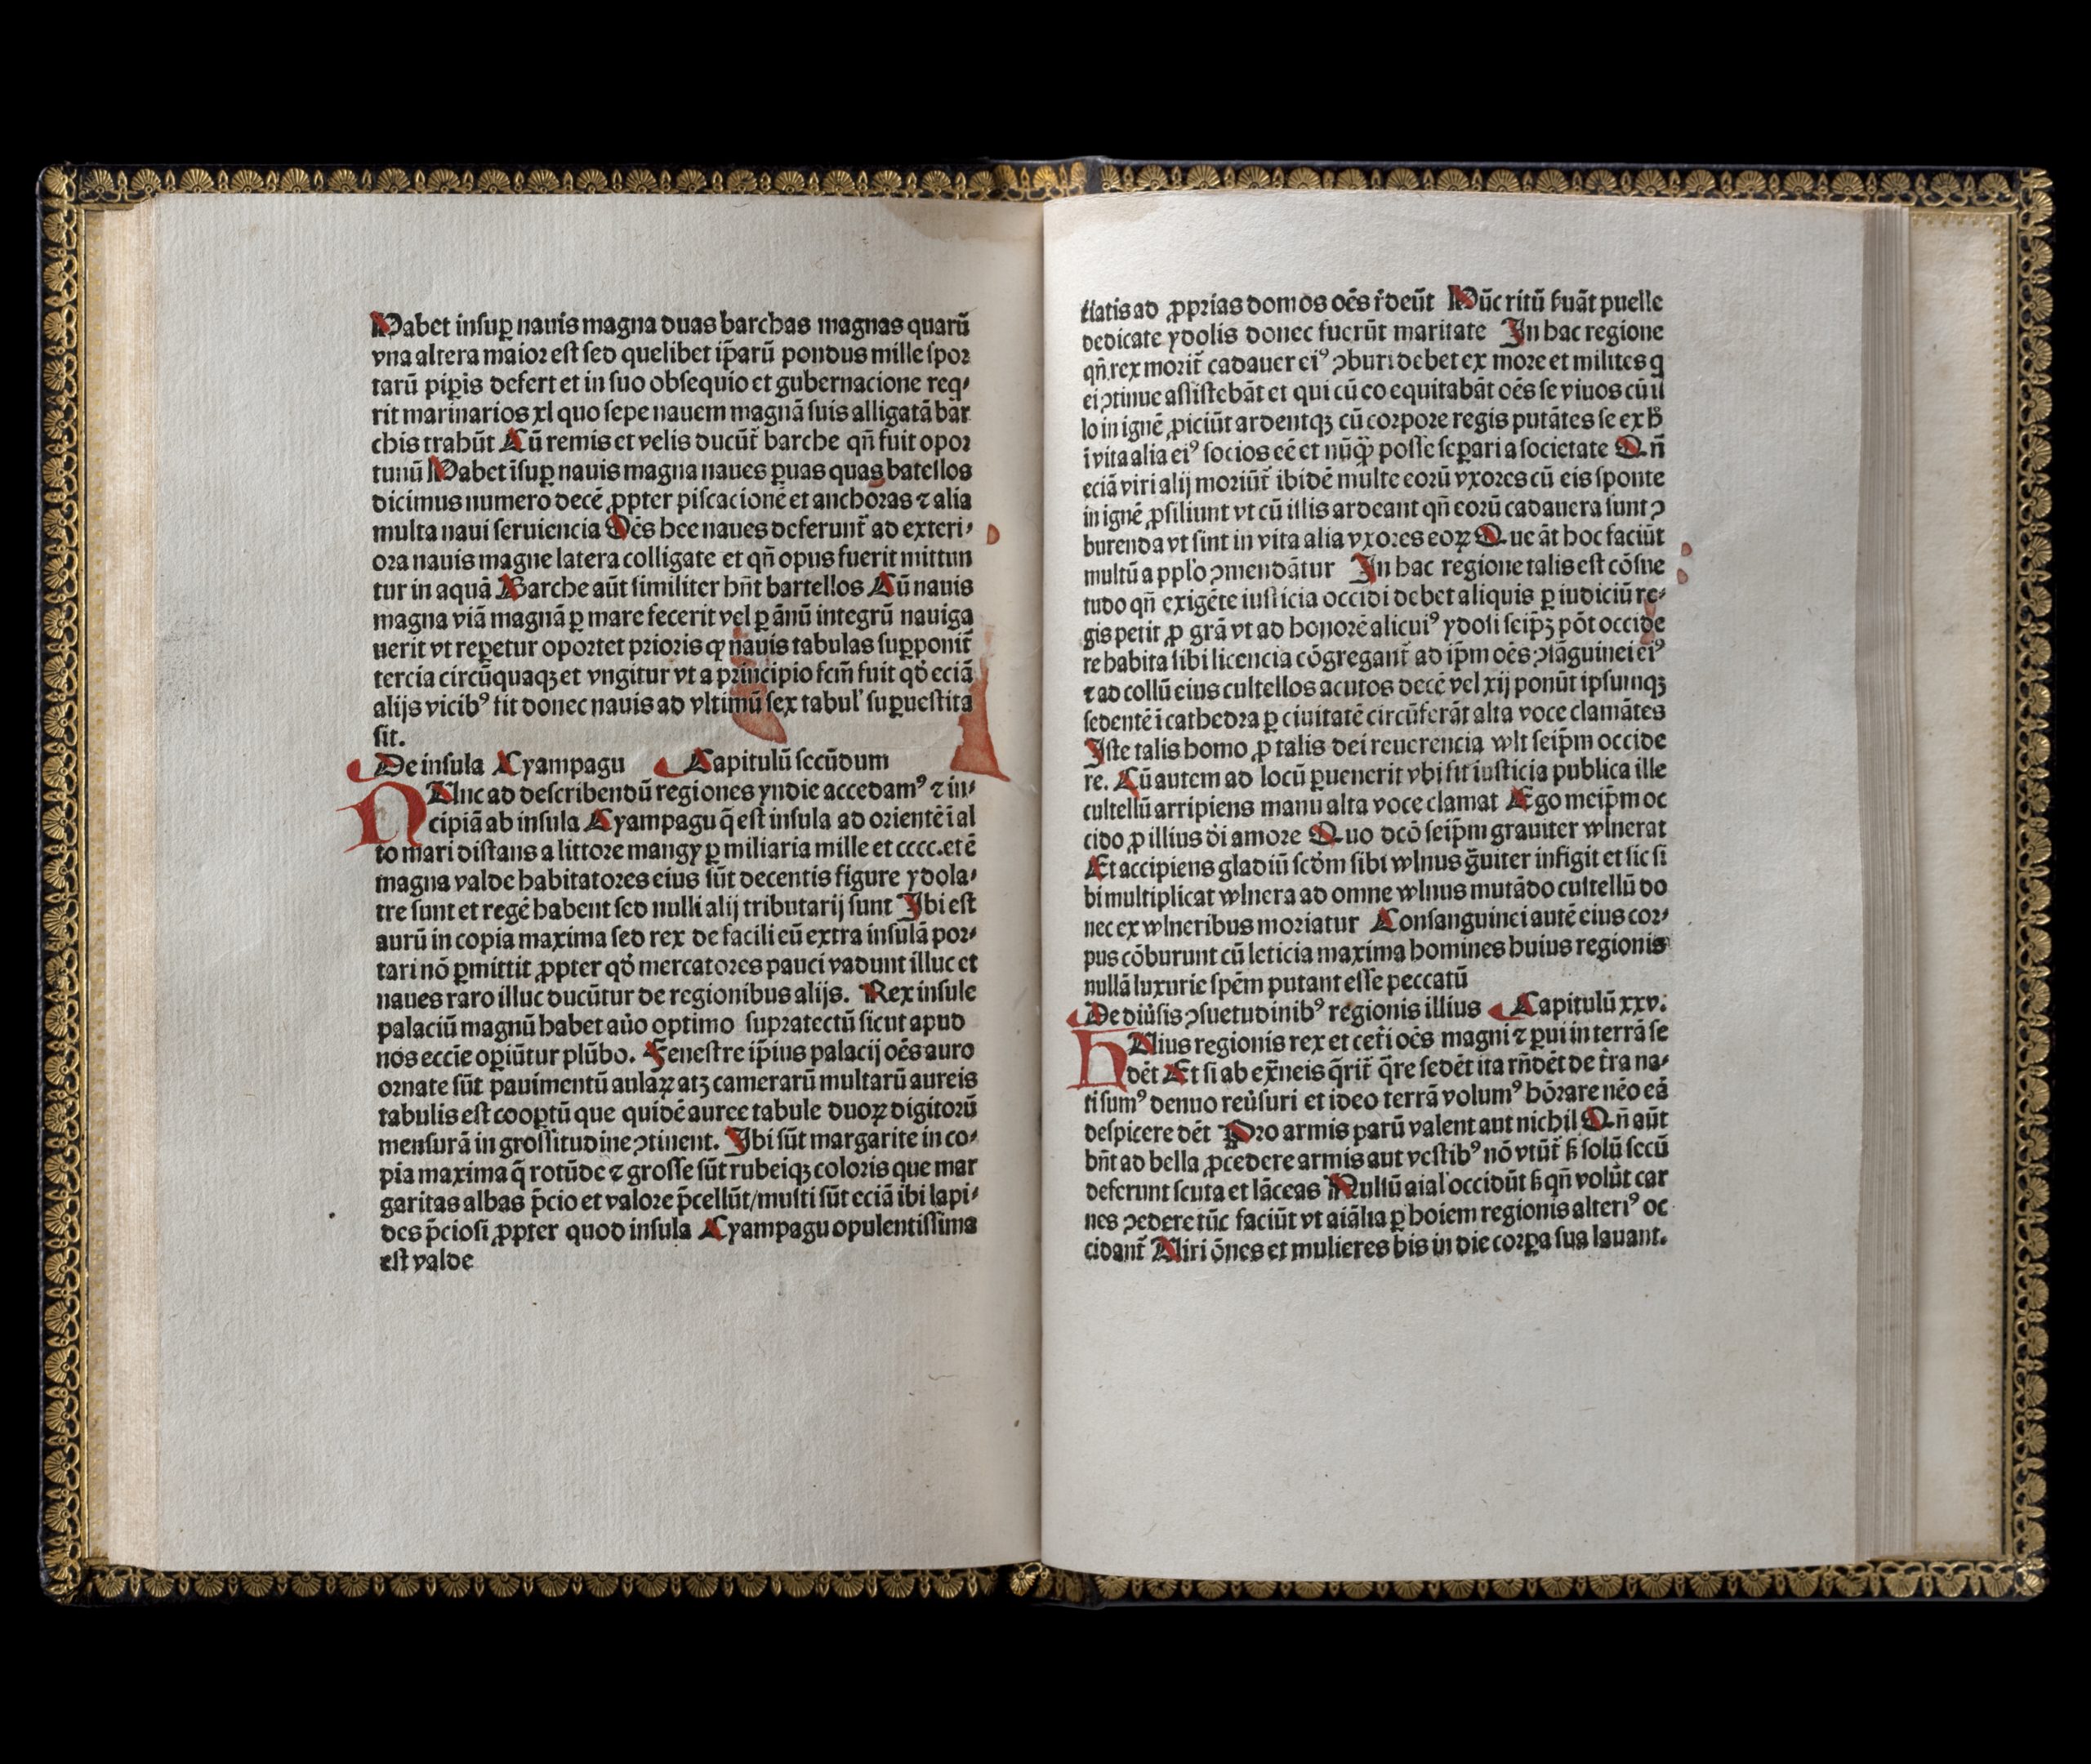 Habet insuꝑ nauis magna duas barchas magnas quarū
vna altera maior est sed quelibet ip̄arū pondus mille spor
tarū pip̱is defert et in suo obsequio et gubernacione req̄⸗
rit marinarios xl quo sepe nauem magnā suis alligatā bar
chis trahūt Cū remis et velis ducūt᷑ barche qn̄ fuit opor
tunū Habet īsuꝑ nauis magna naues ꝑuas quas batellos
dicimus numero decē ꝓpter piscacionē et anchoras ⁊ alia
multa naui seruiencia Oēs hee naues deferunt᷑ ad exteri⸗
ora nauis magne latera colligate et qn̄ opus fuerit mittun
tur in aquā Barche aūt similiter hn̄t bartellos Cū nauis
magna viā magnā ꝑ mare fecerit vel ꝑ ānū integrū nauiga
uerit vt reꝑetur oportet prioris ꝙ nauis tabulas suꝑponit᷑
tercia circūquaqꝫ et vngitur vt a principio fcm̄ fuit qd̄ eciā
alijs vicibꝰ fit donec nauis ad vltimū sex tabul' suꝑuestita
sit.
De insula Cyampagu Capitulū secūdum
NUnc ad describendū regiones yndie accedamꝰ ⁊ in⸗
cipiā ab insula Cyampagu q̄ est insula ad orientē ī al
to mari distans a littore mangy ꝑ miliaria mille et cccc. et ē
magna valde habitatores eius sūt decentis figure ydola⸗
tre sunt et regē habent sed nulli alij tributarij sunt Ibi est
aurū in copia maxima sed rex de facili eū extra insulā por⸗
tari nō ꝑmittit ꝓpter qd̄ mercatores pauci vadunt illuc et
naues raro illuc ducūtur de regionibus alijs. Rex insule
palaciū magnū habet aūo optimo supratectū sicut apud
nos eccīe oꝑiūtur plūbo. Fenestre ip̄ius palacij oēs auro
ornate sūt pauimentū aulaꝝ atꝫ camerarū multarū aureis
tabulis est cooꝑtū que quidē auree tabule duoꝝ digitorū
mensurā in grossitudine ↄtinent. Ibi sūt margarite in co⸗
pia maxima q̄ rotūde ⁊ grosse sūt rubeiqꝫ coloris que mar
garitas albas p̄cio et valore p̄cellūt/multi sūt eciā ibi lapi⸗
des p̄ciosi ꝓpter quod insula Cyampagu opulentissima
est valde
tiatis ad ꝓprias domos oēs r̄deūt Hūc ritū ẜuāt puelle
dedicate ydolis donec fuerūt maritate In hac regione
qn̄ rex morit᷑ cadauer eiꝰ ↄburi debet ex more et milites q̄
ei ↄtinue assistebāt et qui cū eo equitabāt oēs se viuos cū il
lo in ignē ꝓiciūt ardentqꝫ cū corpore regis putātes se ex h̄
ī vita alia eiꝰ socios eē et nūq̄ꝫ posse seꝑari a societate Qn̄
eciā viri alij moriūt᷑ ibidē multe eorū vxores cū eis sponte
in ignē ꝓsiliunt vt cū illis ardeant qn̄ eorū cadauera sunt ↄ
burenda vt sint in vita alia vxores eoꝝ Que āt hoc faciūt
multū a ppl'o ↄmendātur In hac regione talis est cōsue
tudo qn̄ exigēte iusticia occidi debet aliquis ꝑ iudiciū re⸗
gis petit ꝓ grā vt ad honorē alicuiꝰ ydoli seip̄ꝫ pōt occide
re habita sibi licencia cōgregant᷑ ad ip̄m oēs ↄsāguinei eiꝰ
⁊ ad collū eius cultellos acutos decē vel xij ponūt ipsumqꝫ
sedentē ī cathedra ꝑ ciuitatē circūferāt alta voce clamātes
Iste talis homo ꝓ talis dei reuerencia wlt seip̄m occide
re. Cū autem ad locū ꝑuenerit vbi fit iusticia publica ille
cultellū arripiens manu alta voce clamat Ego meip̄m oc
cido ꝓ illius dī amore Quo dcō seip̄m grauiter wlnerat
Et accipiens gladiū scd̄m sibi wlnus g̊uiter infigit et sic si
bi multiplicat wlnera ad omne wlnus mutādo cultellū do
nec ex wlneribus moriatur Consanguinei autē eius cor⸗
pus cōburunt cū leticia maxima homines huius regionis
nullā luxurie spēm putant esse peccatū
De diūsis ↄsuetudinibꝰ regionis illius Capitulū xxv.
hUius regionis rex et cet̄i oēs magni ⁊ ꝑui in terrā se
dēt Et si ab ex̄neis q̄rit᷑ q̄re sedēt ita rn̄dēt de t̄ra na⸗
ti sumꝰ denuo reūsuri et ideo terrā volumꝰ hōrare nēo eā
despicere dēt Pro armis parū valent aut nichil Qn̄ aūt
hn̄t ad bella ꝓcedere armis aut vestibꝰ nō vtūt᷑ ẜ solū secū
deferunt scuta et lāceas Nullū aial' occidūt ẜ qn̄ volūt car
nes ↄedere tūc faciūt vt aiālia ꝑ hoiem regionis alteriꝰ oc
cidant᷑ Uiri ōnes et mulieres bis in die corꝑa sua lauant.